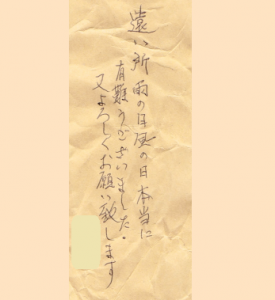 遠い所雨の日風の日本当に
有難うございました.
又よろしくお願い致します